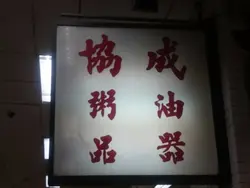 成油器
協粥品